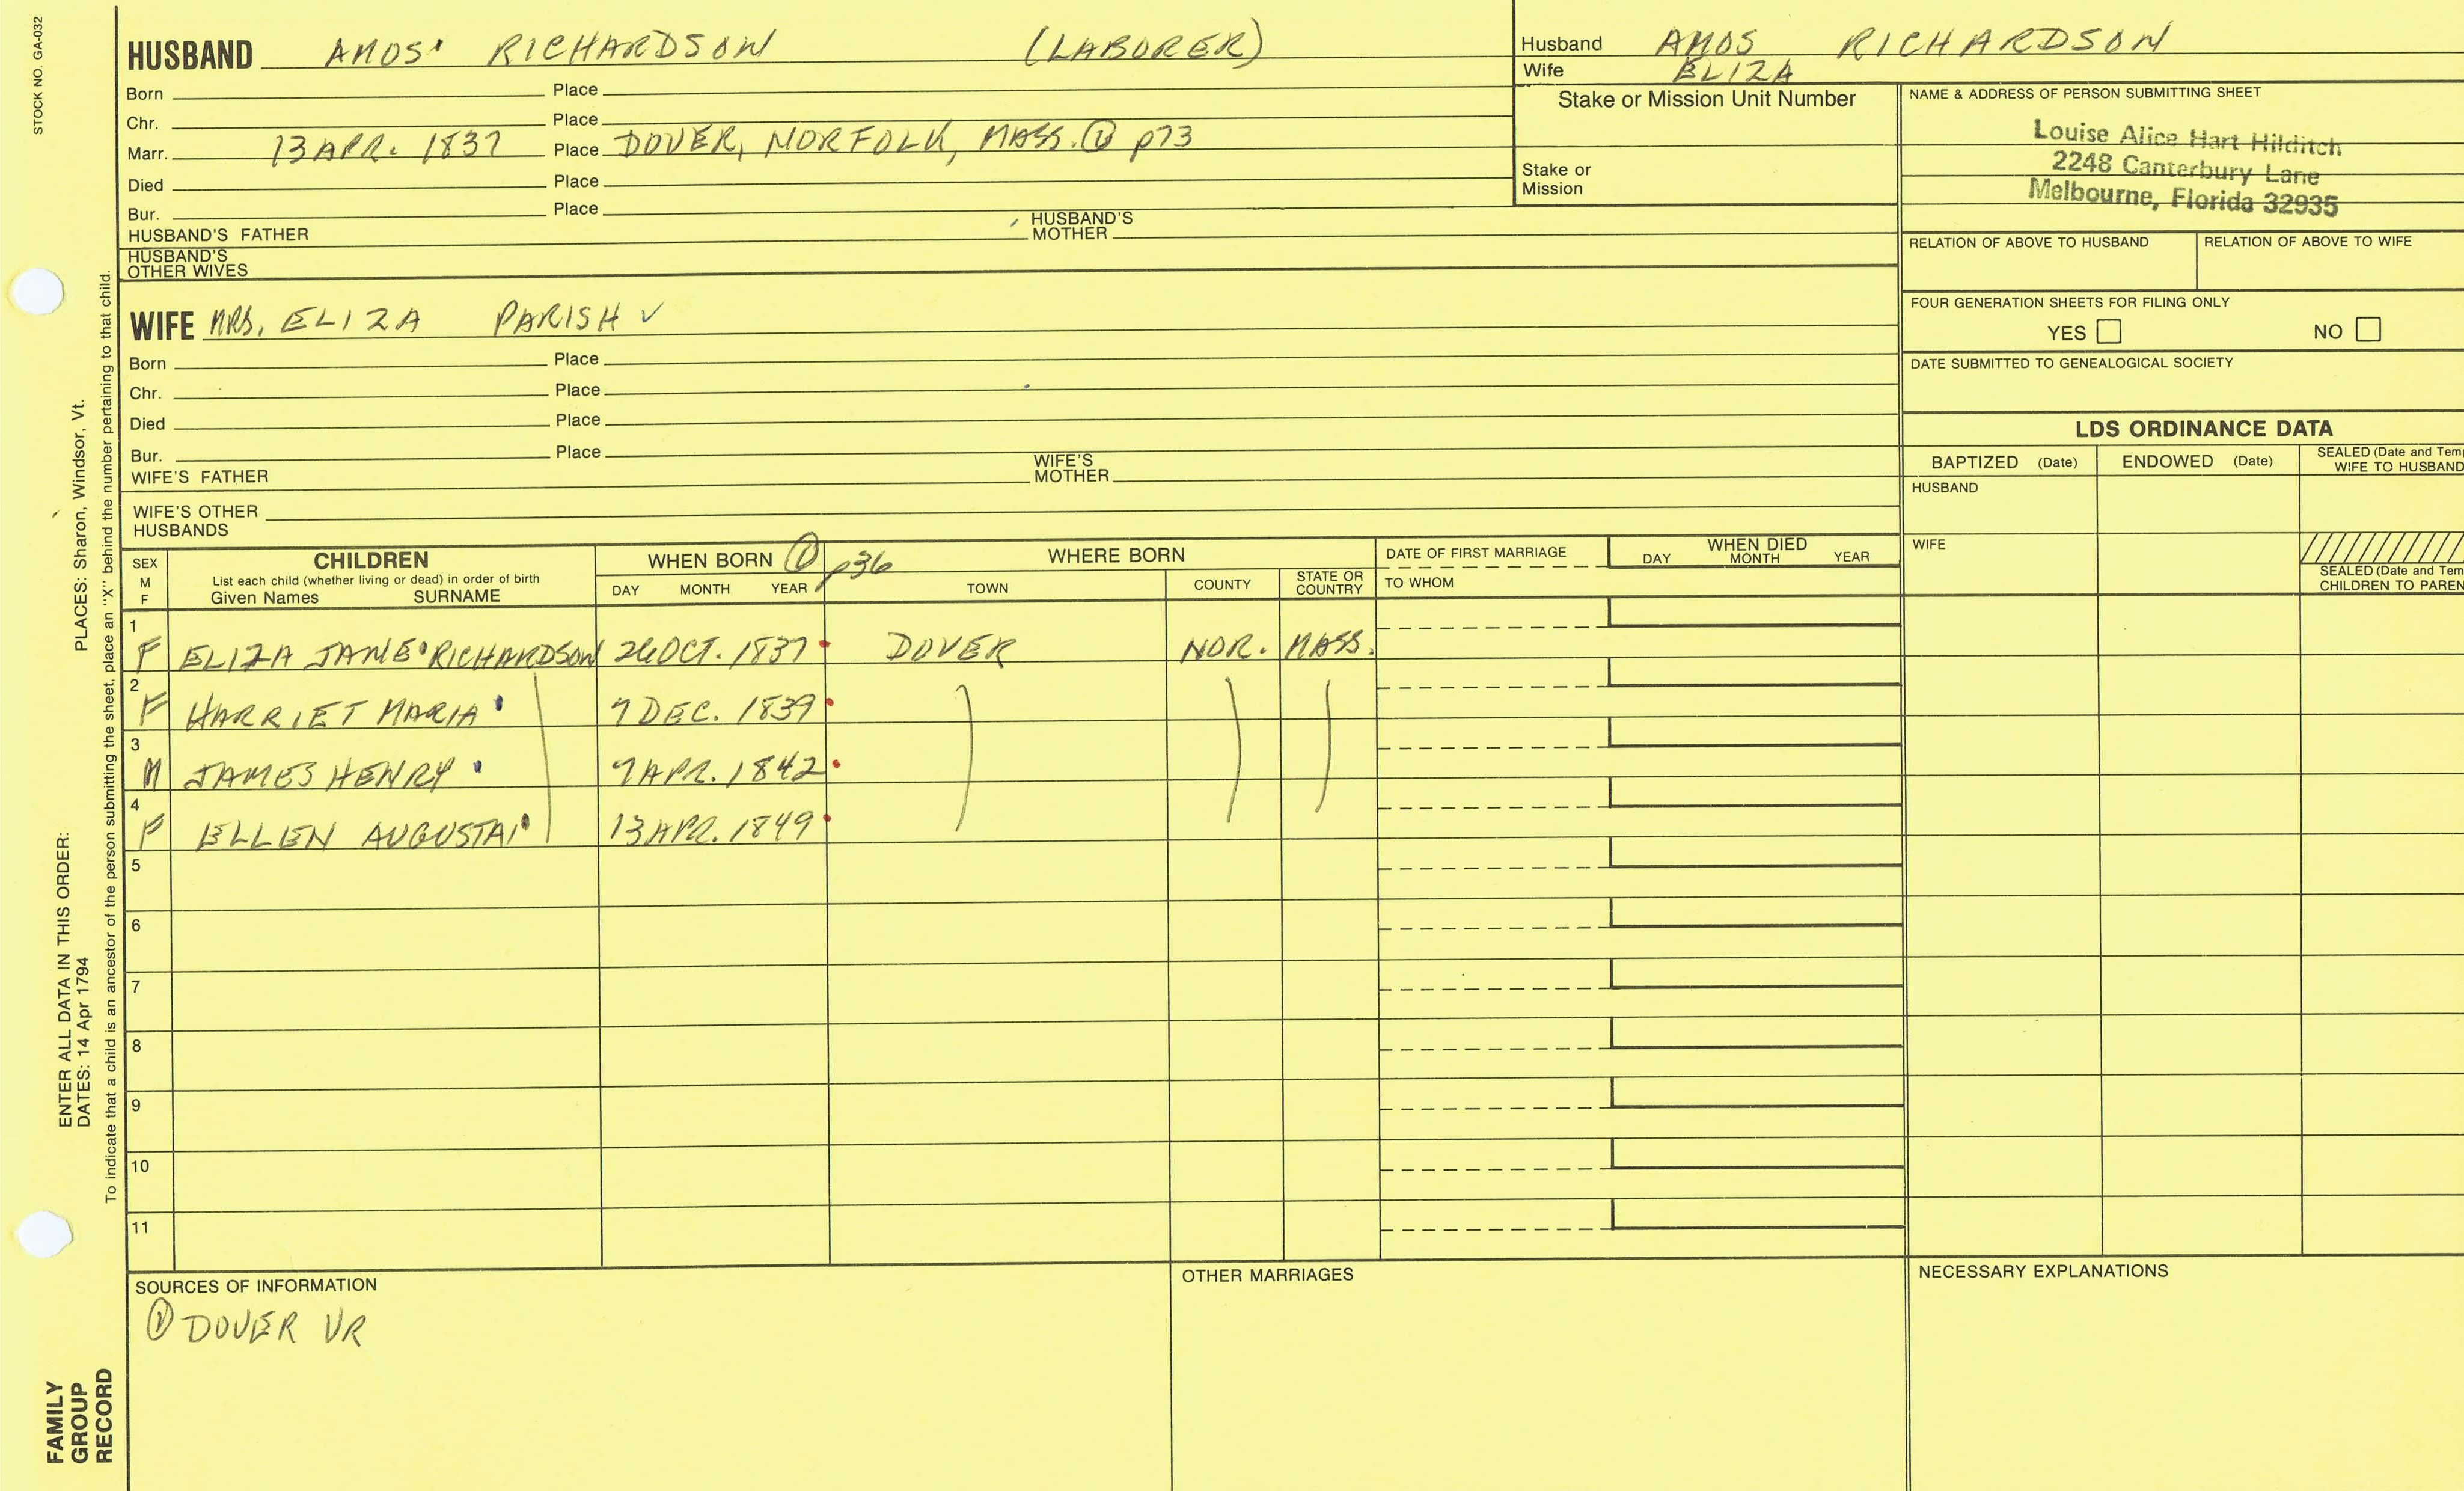 STOCK NO. GA-032
HUSBAND AMOS RICHARDSON (LABORER)
Born Place
Chr. Place
Marr. 13 APR. 1837 Place DOVER, NORFOLK, MASS. ① p73
Died Place
Bur. Place
HUSBAND'S FATHER HUSBAND'S MOTHER
HUSBAND'S OTHER WIVES
WIFE MRS. ELIZA PARISH ✓
Born Place
Chr. Place
Died Place
Bur. Place
WIFE'S FATHER WIFE'S MOTHER
WIFE'S OTHER HUSBANDS
Husband AMOS RICHARDSON
Wife ELIZA
Stake or Mission Unit Number
Stake or Mission
NAME & ADDRESS OF PERSON SUBMITTING SHEET
Louise Alice Hart Hilditch
2248 Canterbury Lane
Melbourne, Florida 32935
RELATION OF ABOVE TO HUSBAND RELATION OF ABOVE TO WIFE
FOUR GENERATION SHEETS FOR FILING ONLY
YES NO
DATE SUBMITTED TO GENEALOGICAL SOCIETY
LDS ORDINANCE DATA
BAPTIZED (Date) ENDOWED (Date) SEALED (Date and Tem
WIFE TO HUSBAND
HUSBAND
WIFE
SEALED (Date and Tem
CHILDREN TO PAREN
SEX M F
CHILDREN
List each child (whether living or dead) in order of birth
Given Names SURNAME
WHEN BORN ① p36
DAY MONTH YEAR
WHERE BORN
TOWN COUNTY STATE OR COUNTRY
DATE OF FIRST MARRIAGE
TO WHOM
WHEN DIED
DAY MONTH YEAR
1 F ELIZA JANE RICHARDSON 26 OCT. 1837 DOVER NOR. MASS.
2 F HARRIET MARIA 7 DEC. 1839
3 M JAMES HENRY 7 APR. 1842
4 F ELLEN AUGUSTA 13 APR. 1849
5
6
7
8
9
10
11
SOURCES OF INFORMATION
① DOVER VR
OTHER MARRIAGES
NECESSARY EXPLANATIONS
To indicate that a child is an ancestor of the person submitting the sheet, place an "X" behind the number pertaining to that child.
ENTER ALL DATA IN THIS ORDER:
DATES: 14 Apr 1794 PLACES: Sharon, Windsor, Vt.
FAMILY
GROUP
RECORD